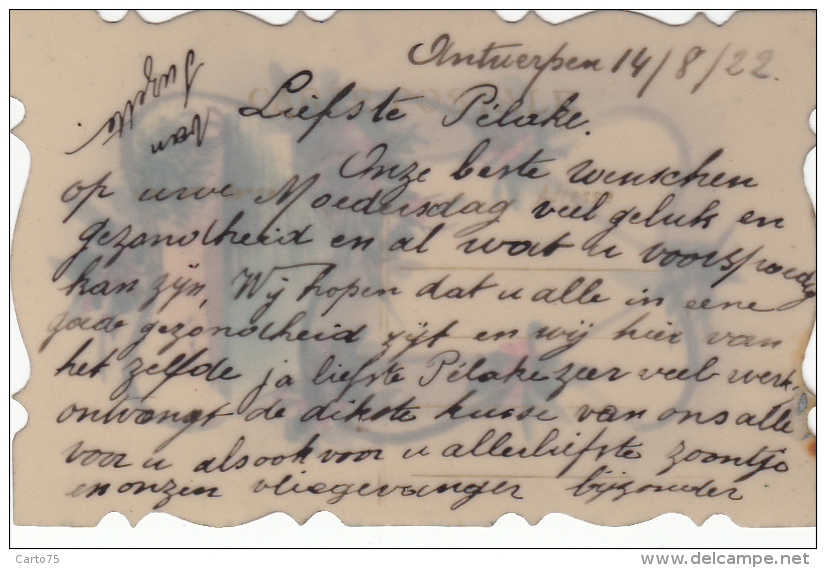 Antwerpen 14/8/22.
van Juzette
Liefste Pélake.
Onze beste wenschen
op uwe Moedersdag veel geluk en
gezondheid en al wat u voorspoedig
kan zijn, Wij hopen dat u alle in eene
goede gezondheid zijt en wij hier van
het zelfde ja liefste Pélake zeer veel werk.
ontvangt de dikste kusse van ons alle
voor u alsook voor u allerliefste zoontje
en onzen vliegevanger bijzonder
Carto75
delcampe.net